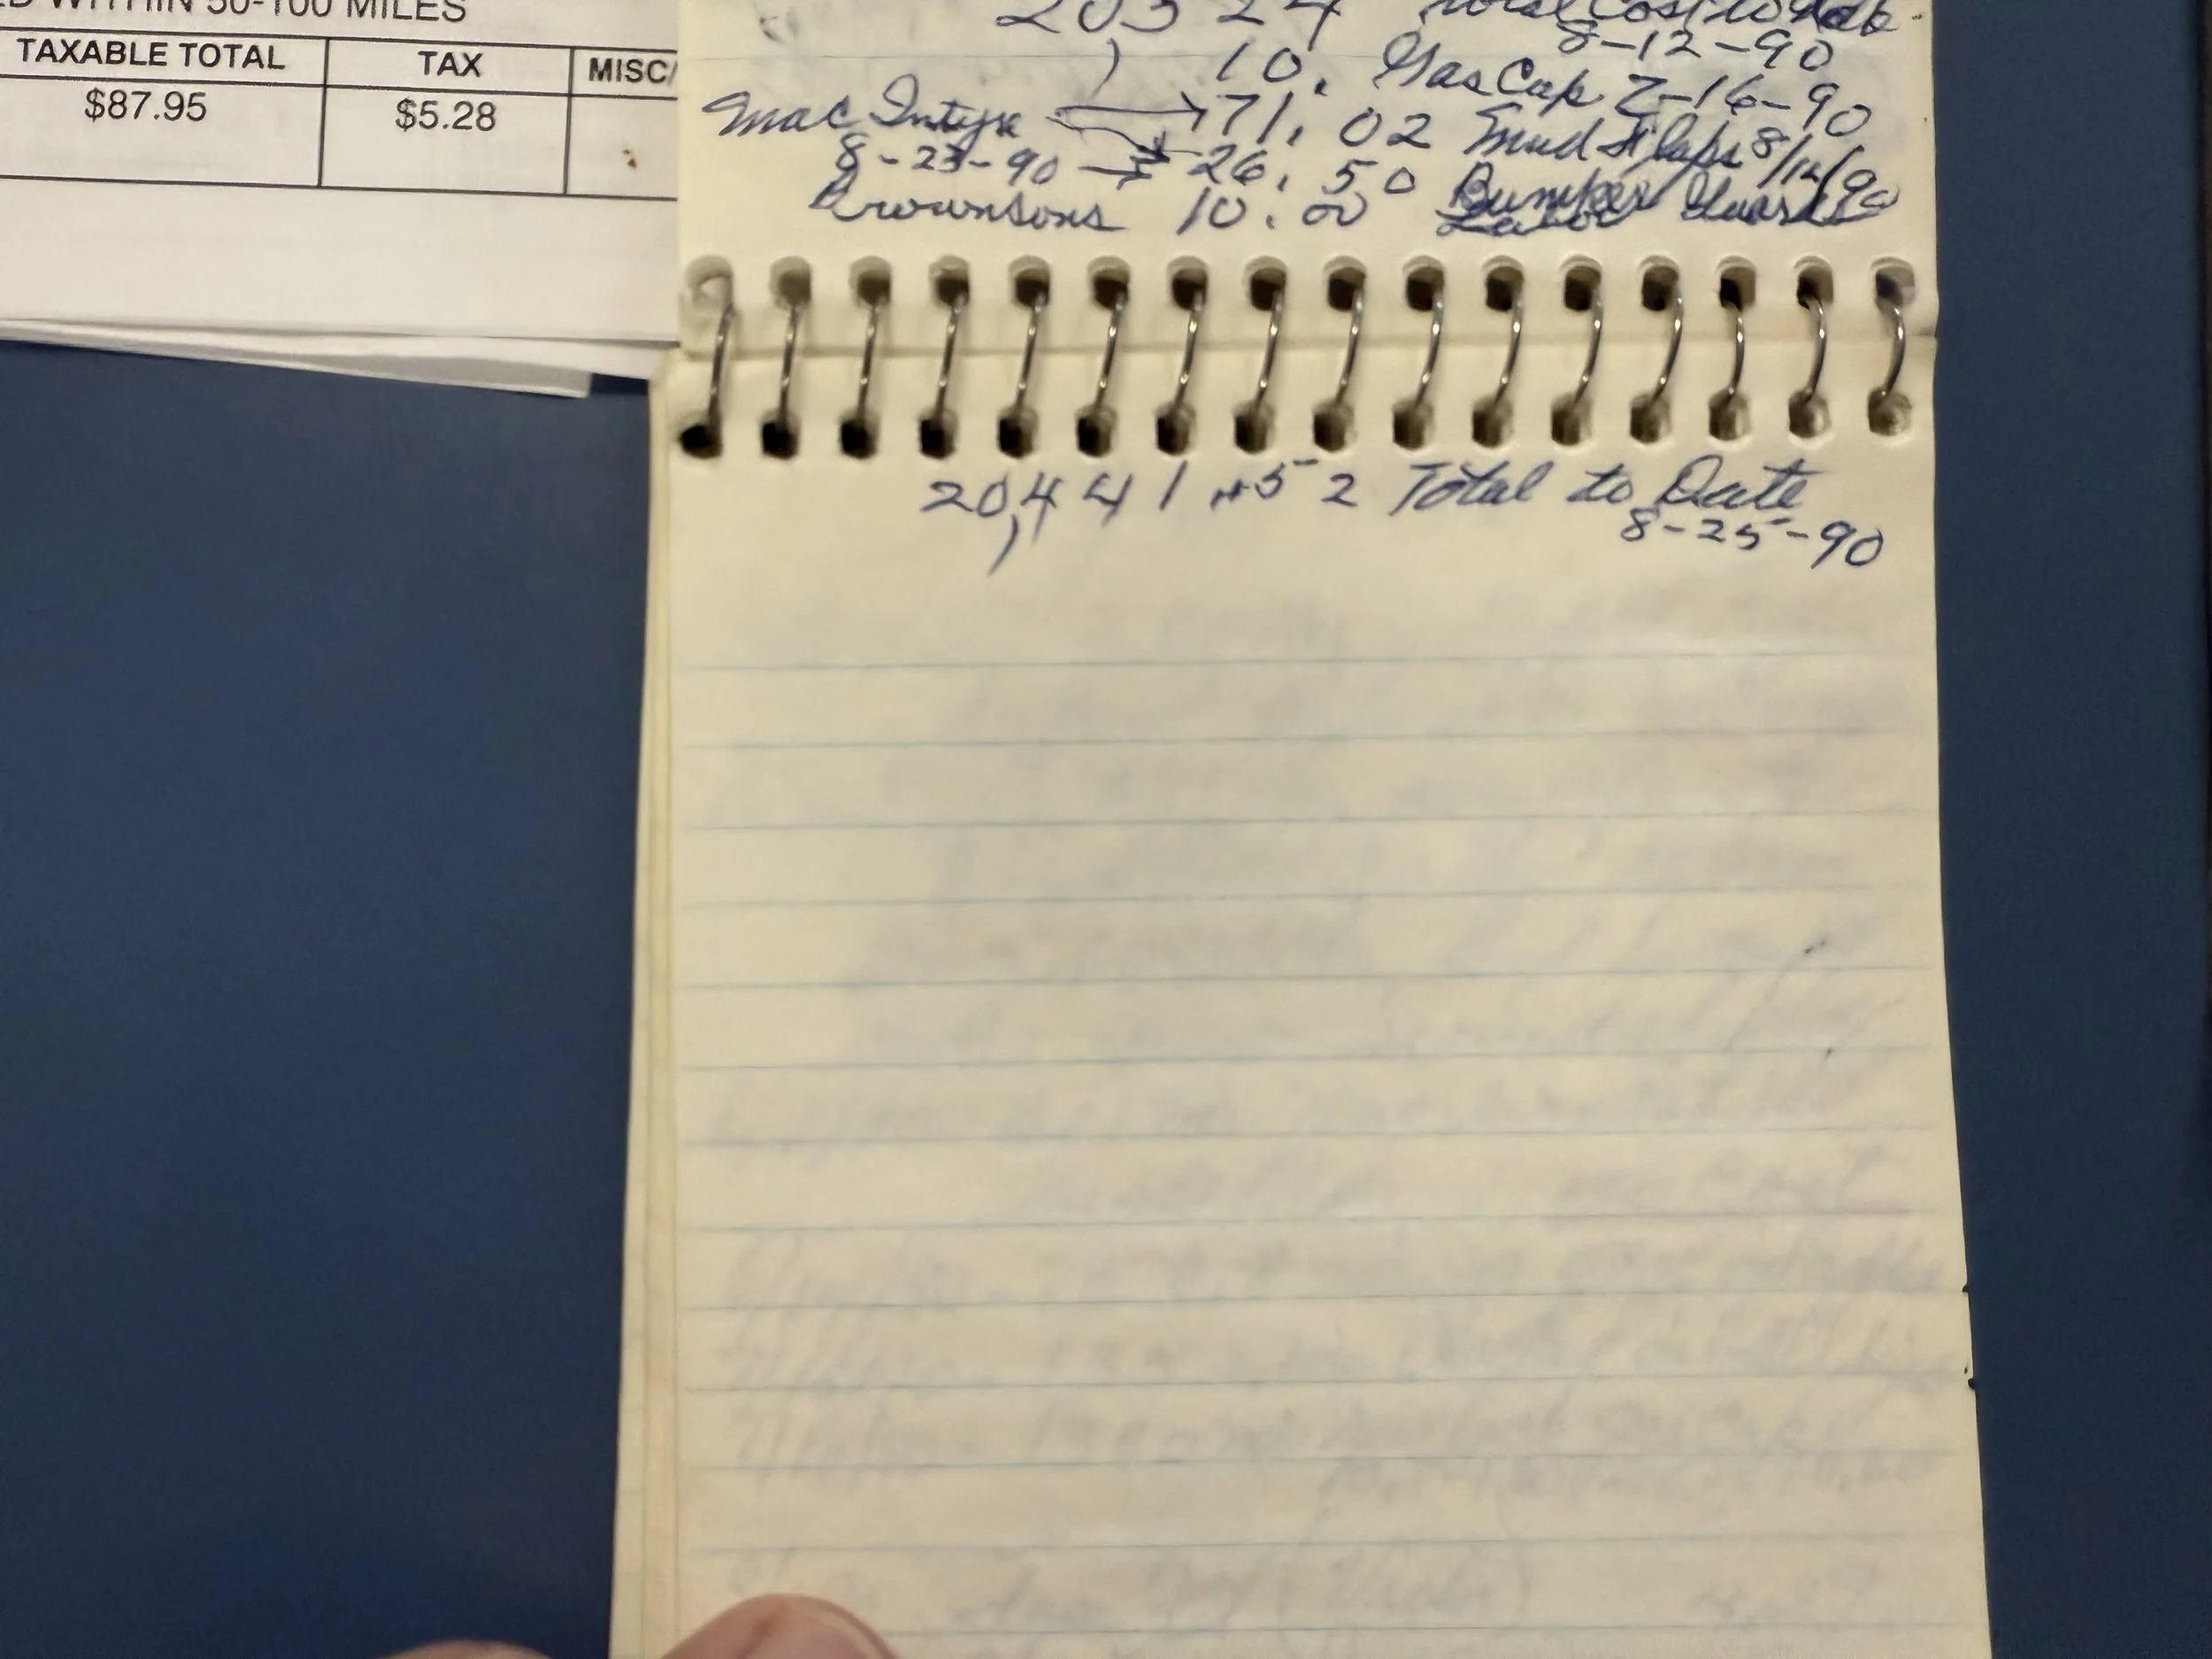 D WITHIN 50-100 MILES
TAXABLE TOTAL TAX MISC/
$87.95 $5.28
20324 Total Cost to Date
8-12-90
10. Gas Cap 7-16-90
Mac Intyre 71.02 Mud Flaps 8/12/90
8-23-90 26.50 Bumper Guards
Brownsons 10.00 Labor
20,441.52 Total to Date
8-25-90